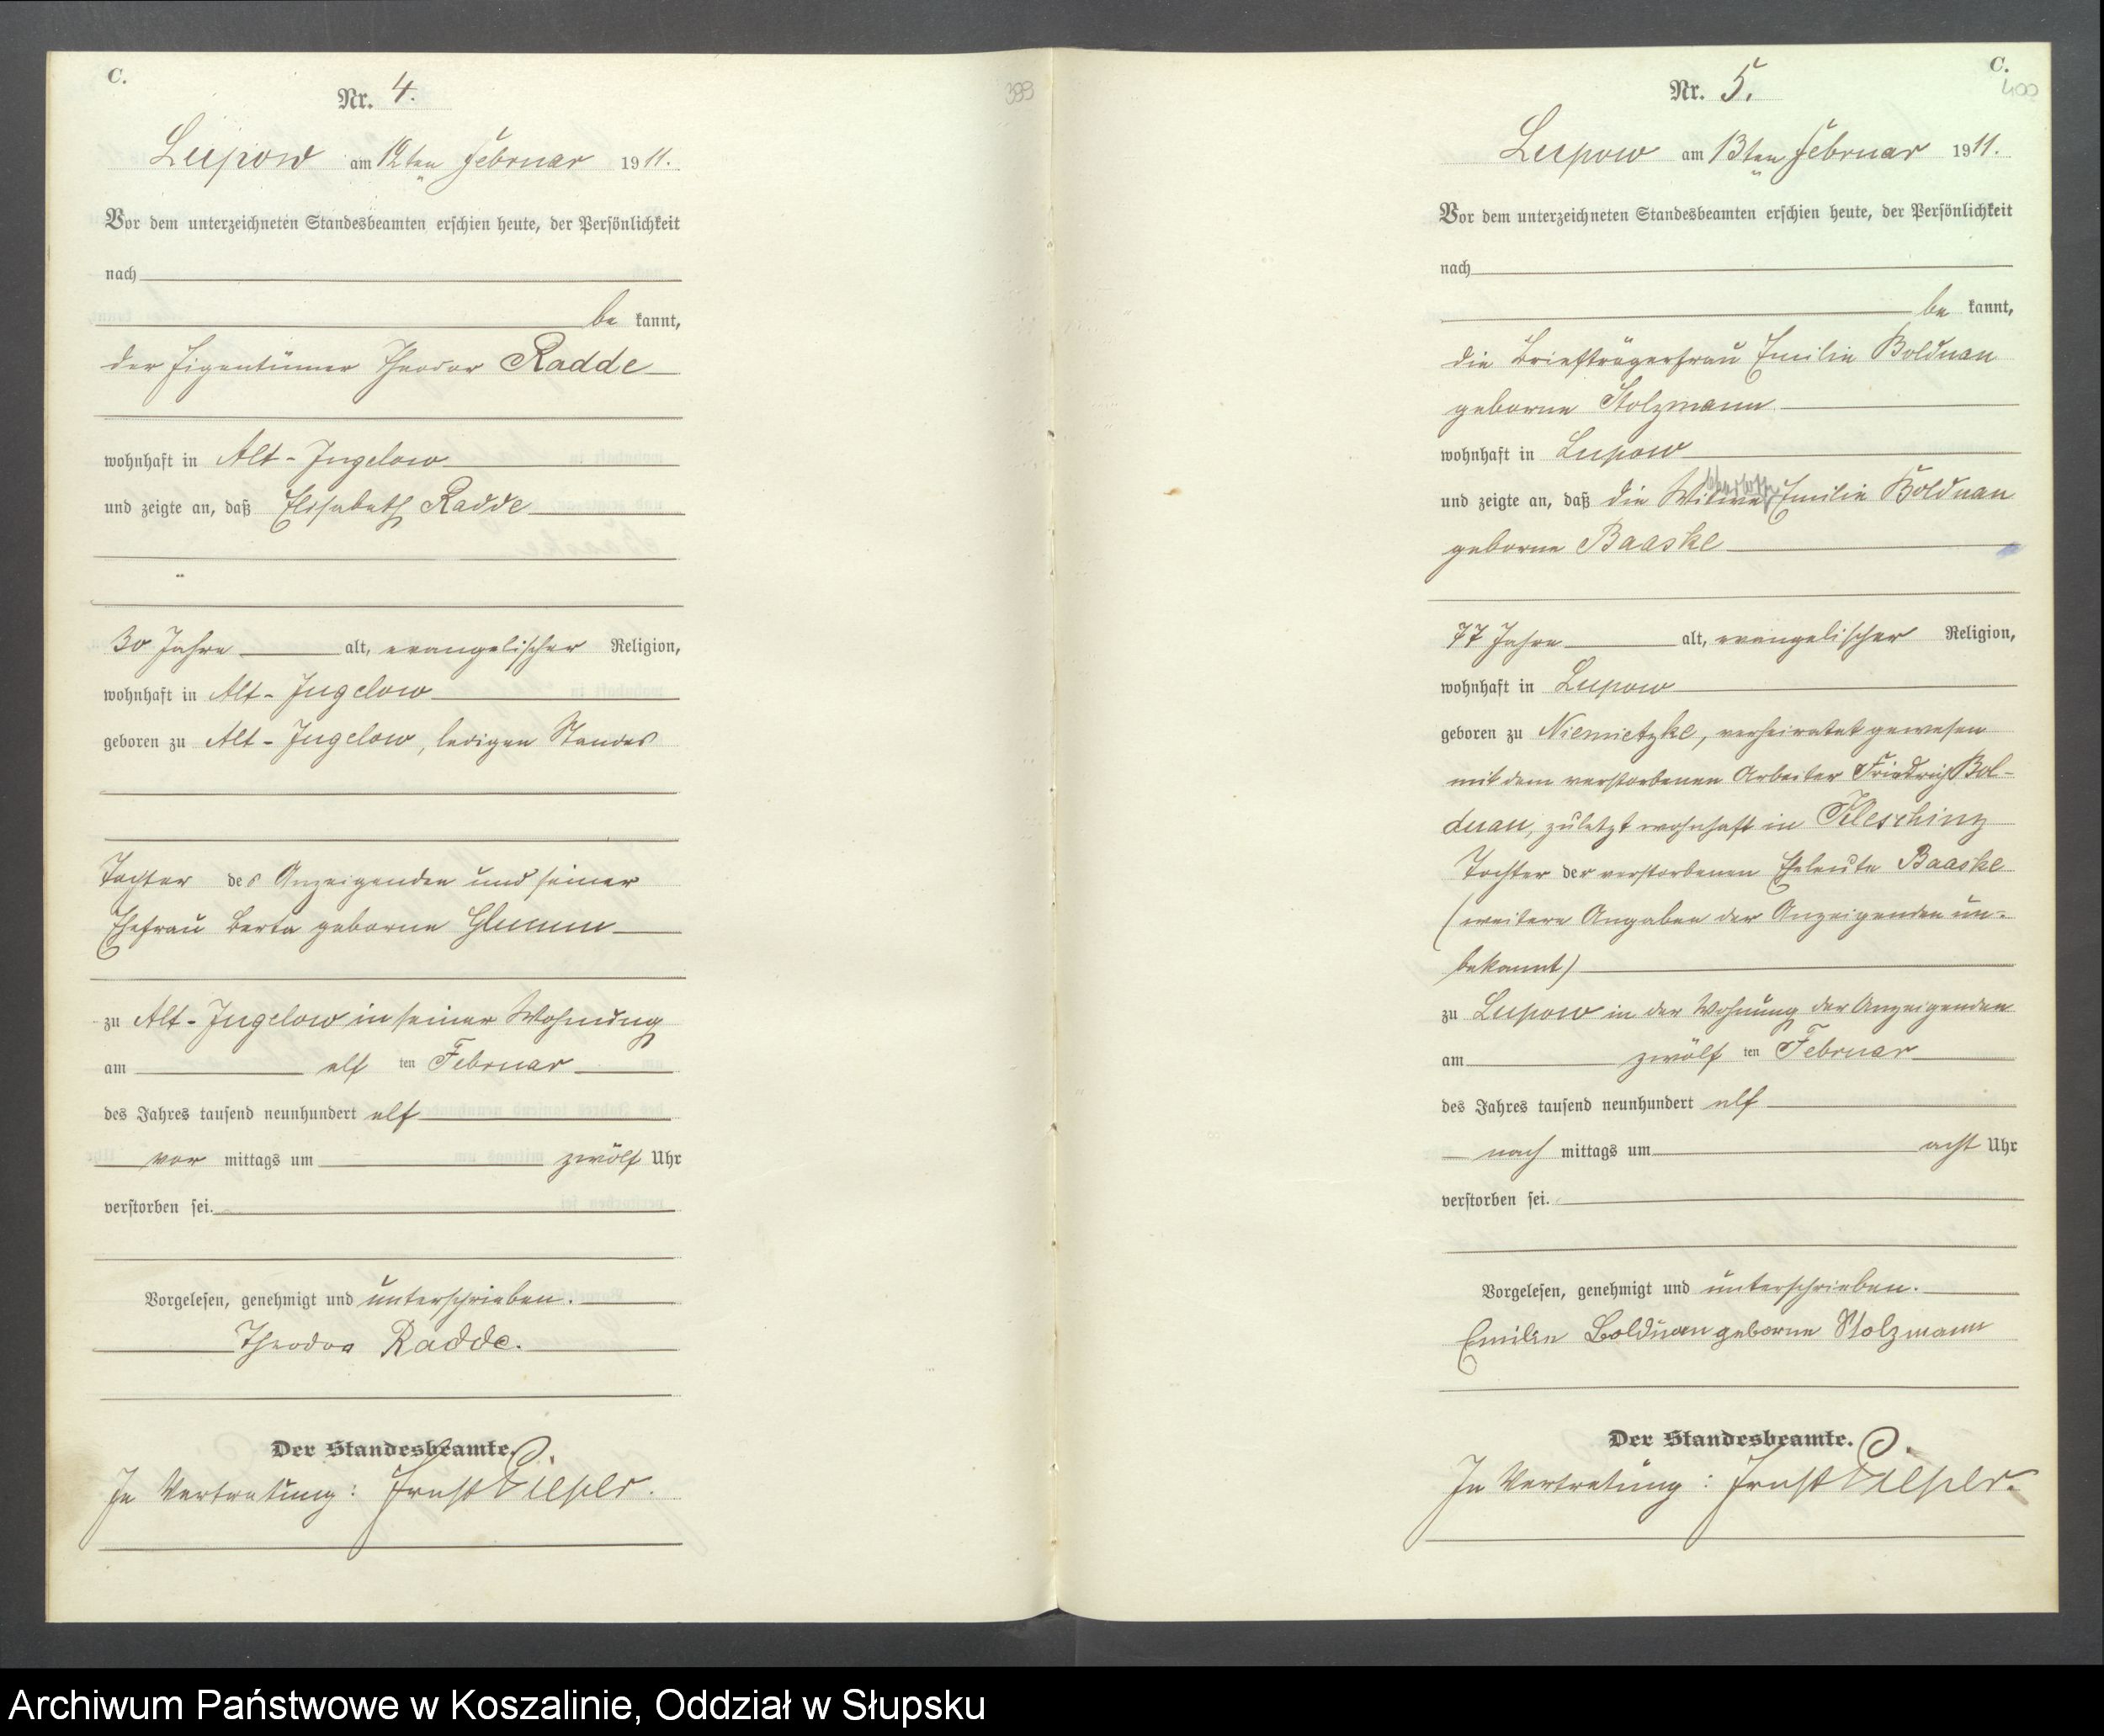 C.
399
Nr. 4.
Lupow am 12ten Februar 1911.
Vor dem unterzeichneten Standesbeamten erschien heute, der Persönlichkeit
nach
be kannt,
der Eigentümer Theodor Radde
wohnhaft in Alt-Jugelow
und zeigte an, daß Elisabeth Radde
30 Jahre alt, evangelischer Religion,
wohnhaft in Alt-Jugelow
geboren zu Alt-Jugelow, ledigen Standes
Tochter des Anzeigenden und seiner
Ehefrau Berta geborne Glumm
zu Alt-Jugelow in seiner Wohnung
am elf ten Februar
des Jahres tausend neunhundert elf
vor mittags um zwölf Uhr
verstorben sei.
Vorgelesen, genehmigt und unterschrieben.
Theodor Radde.
Der Standesbeamte.
In Vertretung: Ernst Pieper.
C.
400
Nr. 5.
Lupow am 13ten Februar 1911.
Vor dem unterzeichneten Standesbeamten erschien heute, der Persönlichkeit
nach
be kannt,
die Briefträgerfrau Emilie Bolduan
geborne Stolzmann
wohnhaft in Lupow
und zeigte an, daß die Witwe Emilie Bolduan
geborne Baaske
77 Jahre alt, evangelischer Religion,
wohnhaft in Lupow
geboren zu Niemietzke, verheiratet gewesen
mit dem verstorbenen Arbeiter Friedrich Bol-
duan, zuletzt wohnhaft in Kleschinz
Tochter der verstorbenen Eheleute Baaske
(weitere Angaben der Anzeigenden un-
bekannt)
zu Lupow in der Wohnung der Anzeigenden
am zwölf ten Februar
des Jahres tausend neunhundert elf
nach mittags um acht Uhr
verstorben sei.
Vorgelesen, genehmigt und unterschrieben.
Emilie Bolduan geborne Stolzmann
Der Standesbeamte.
In Vertretung: Ernst Pieper.
Archiwum Państwowe w Koszalinie, Oddział w Słupsku